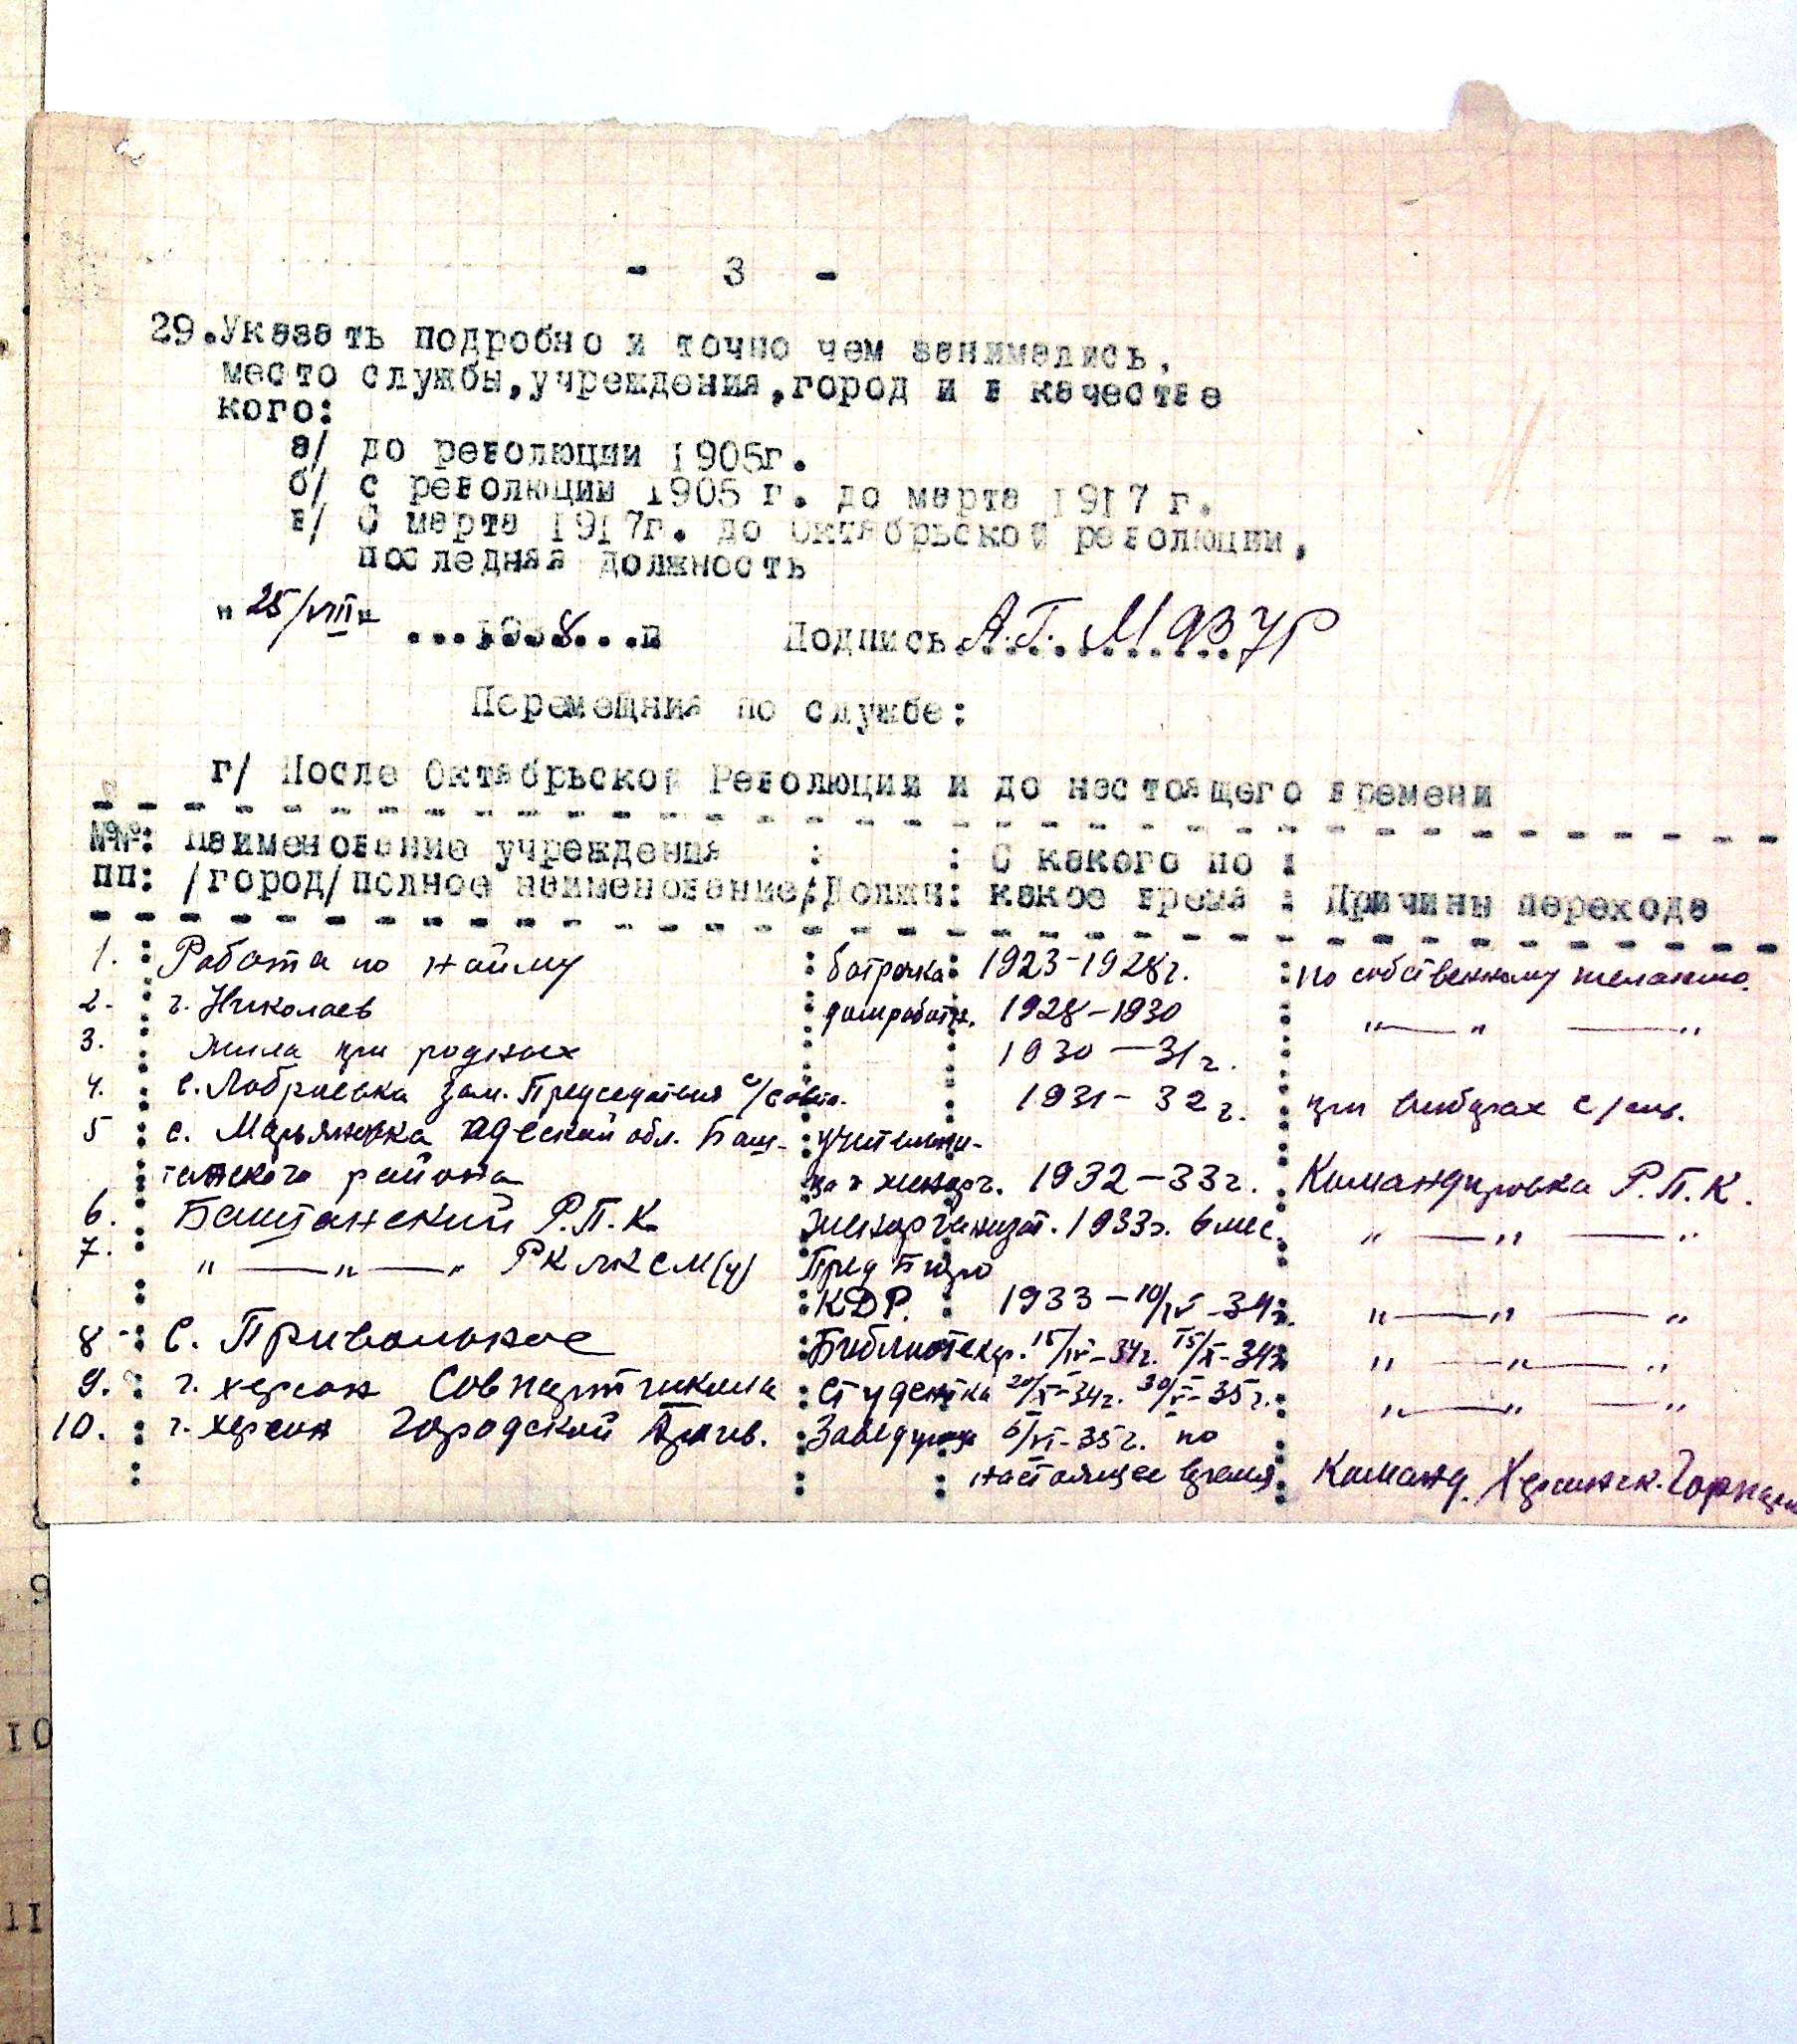 - 3 -
29.Указать подробно и точно чем занимались,
место службы,учреждения,город и в качестве
кого:
а/ до революции 1905г.
б/ с революции 1905 г. до марта 1917 г.
в/ С марта 1917г. до Октябрьской революции,
последняя должность
"25/VIII" ...1938...г Подпись А.Г. Мязур
Перемещния по службе:
г/ После Октябрьской Революции и до настоящего времени
№№: Наименование учреждения : : С какого по :
пп: /город/полное наименование/:Должн: какое время : Причины перехода
1. Работа по найму батрачка 1923-1928г. по собственному желанию.
2. г. Николаев домработн. 1928-1930 " — " — "
3. Жила при родных 1930-31г.
4. с. Лобриевка зам. Председателя с/совета. 1931-32г. при выборах с/сов.
5 с. Марьяновка Одеской обл. Баш- учительни-
танского района ца и женорг. 1932-33г. Командировка Р.П.К.
6. Баштанский Р.П.К. женорганизат. 1933г. 6 мес. " — " — "
7. " — " — " РКЛКСМ(у) Пред Бюро
КДР. 1933-10/IV-34г. " — " — "
8 - С. Привольное Библиотекар. 15/IV-34г. 15/X-34г. " — " — "
9. г. Херсон Совпартшкола Студентка 20/X-34г. 30/V-35г. " — " — "
10. г. Херсон Городской Архив. Заведующая 6/VI-35г. по
настоящее время Команд. Херсонск. Горпарт
9
10
11